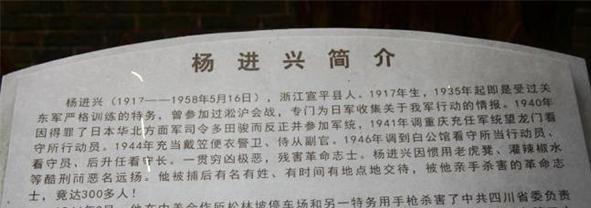 杨进兴简介
杨进兴（1917——1958年5月16日），浙江宣平县人。1917年生，1935年起即是受过关
东军严格训练的特务，曾参加过淞沪会战，专门为日军收集关于我军行动的情报。1940年
因得罪了日本华北方面军司令多田骏而反正并参加军统，1941年调重庆充任军统望龙门看
守所行动员。1944充当戴笠便衣警卫、侍从副官。1946年调到白公馆看守所当行动员、
看守员、后升任看守长。一贯穷凶极恶，残害革命志士。杨进兴因惯用老虎凳、灌辣椒水
等酷刑而恶名远扬。他被捕后有名有姓、有时间有地点地交待，被他亲手杀害的革命志
士，竟达300多人！
他在中美合作所松林坡停车场和另一特务用手枪杀害了中共四川省委负责